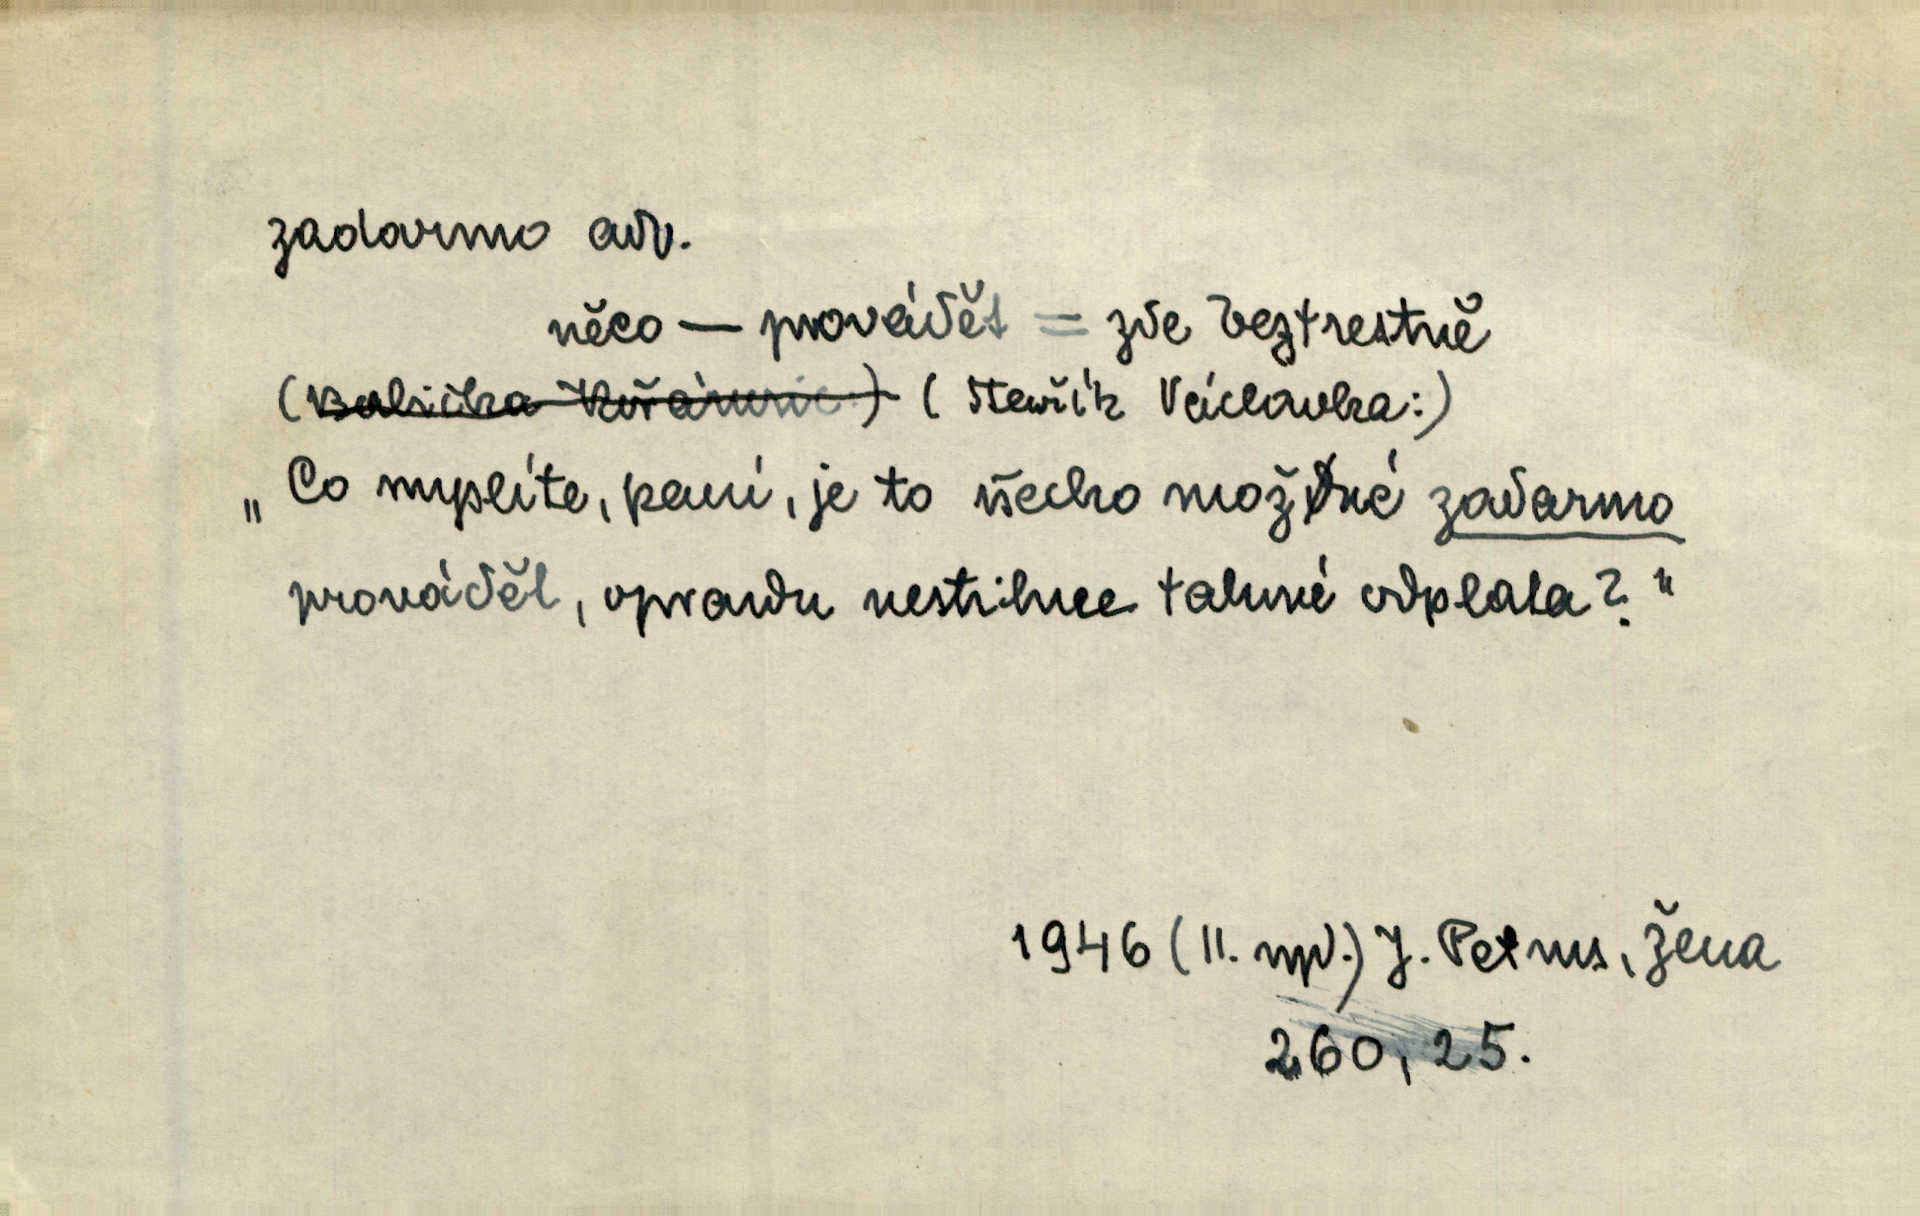 zadarmo adv.
něco — provádět = zde beztrestně
(Babička (Stařík Václavka:)
„Co myslíte, paní, je to všecko možné zadarmo
prováděl, opravdu nestihne takové odplata?"
1946 (II. vyd.) J. Petrus, Žena
260, 25.